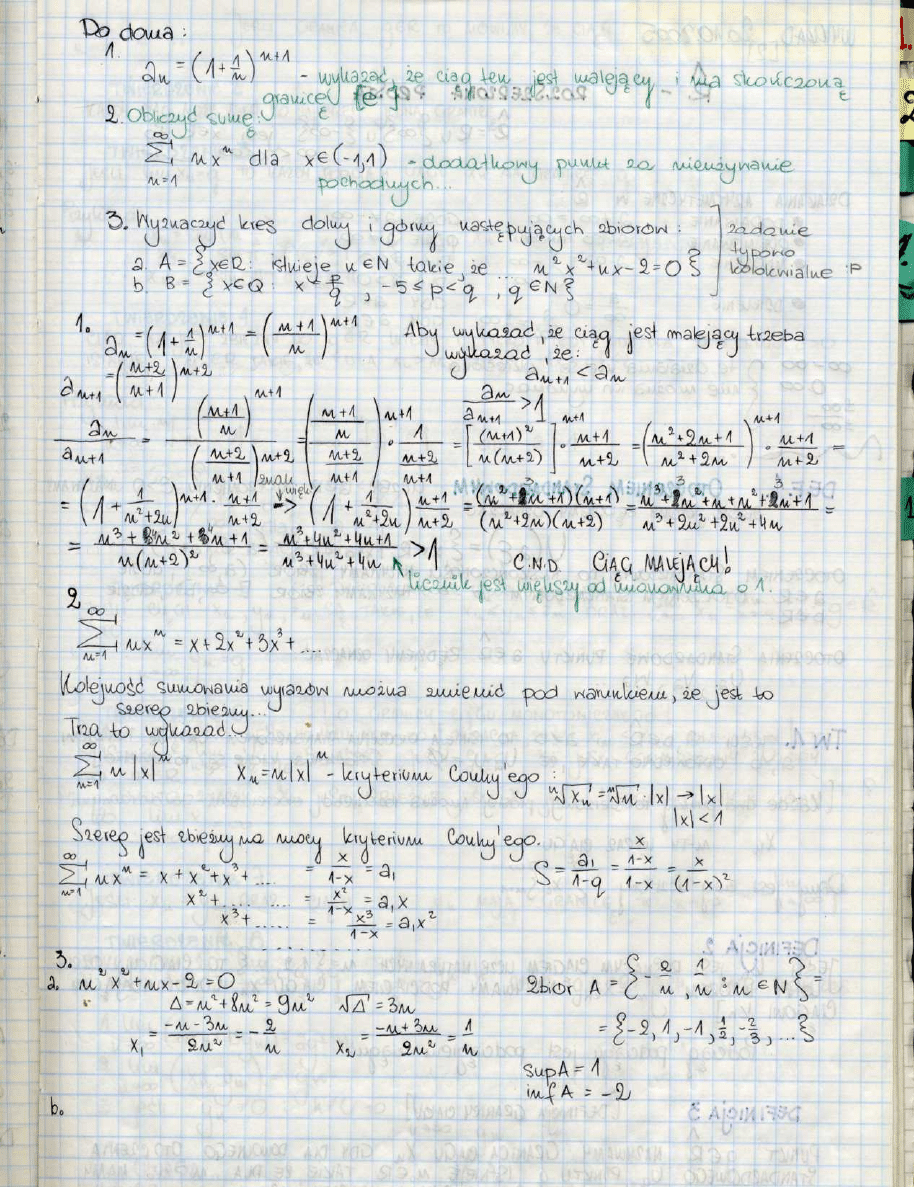 Do domu:
1.
aₙ = (1+1/n)ⁿ⁺¹ - wykazać, że ciąg ten jest malejący i ma skończoną
granicę [e]
2. Obliczyć sumę:
∞ ∑ n=1 nxⁿ dla x∈(-1,1) - dodatkowy punkt za nieużywanie
pochodnych...
3. Wyznaczyć kres dolny i górny następujących zbiorów:
zadanie
typowo
kolokwialne :P
a. A = {x∈R: istnieje n∈N takie, że ... n²x²+nx-2=0}
b. B = {x∈Q: x = p/q, -5≤p<q, q∈N}
1.
aₙ = (1+1/n)ⁿ⁺¹ = ((n+1)/n)ⁿ⁺¹ Aby wykazać, że ciąg jest malejący trzeba
wykazać, że:
aₙ₊₁ = ((n+2)/(n+1))ⁿ⁺² aₙ₊₁ < aₙ
aₙ/aₙ₊₁ > 1
aₙ/aₙ₊₁ = ((n+1)/n)ⁿ⁺¹ / ((n+2)/(n+1))ⁿ⁺² = (((n+1)/n)/((n+2)/(n+1)))ⁿ⁺¹ · 1/((n+2)/(n+1)) = [(n+1)²/(n(n+2))]ⁿ⁺¹ · (n+1)/(n+2) = ((n²+2n+1)/(n²+2n))ⁿ⁺¹ · (n+1)/(n+2) =
znak
= (1+1/(n²+2n))ⁿ⁺¹ · (n+1)/(n+2) -> (1+(n+1)/(n²+2n)) (n+1)/(n+2) = (n²+3n+1)(n+1)/((n²+2n)(n+2)) = (n³+3n²+n+n²+3n+1)/(n³+2n²+2n²+4n) =
= (n³+4n²+4n+1)/(n(n+2)²) = (n³+4n²+4n+1)/(n³+4n²+4n) > 1 C.N.D. CIĄG MALEJĄCY!
licznik jest większy od mianownika o 1.
2
∞ ∑ n=1 nxⁿ = x+2x²+3x³+....
Kolejność sumowania wyrazów można zmienić pod warunkiem, że jest to
szereg zbieżny...
Trza to wykazać.
∞ ∑ n=1 n|x|ⁿ Xₙ = n|x|ⁿ - kryterium Couhy'ego:
ⁿ√Xₙ = ⁿ√n · |x| → |x|
|x| < 1
Szereg jest zbieżny na mocy kryterium Couhy'ego.
∞ ∑ n=1 nxⁿ = x+x²+x³+.... = x/(1-x) = a₁ S = a₁/(1-q) = (x/(1-x))/(1-x) = x/(1-x)²
x²+.... ..... = x²/(1-x) = a₁x
x³+.... ..... = x³/(1-x) = a₁x²
...........
3.
a. n²x²+nx-2=0 Zbiór A = {-2/n, 1/n : n∈N} =
Δ = n²+8n² = 9n² √Δ = 3n
x₁ = (-n-3n)/2n² = -2/n x₂ = (-n+3n)/2n² = 1/n = {-2, 1, -1, 1/2, -2/3, ...}
sup A = 1
inf A = -2
b.